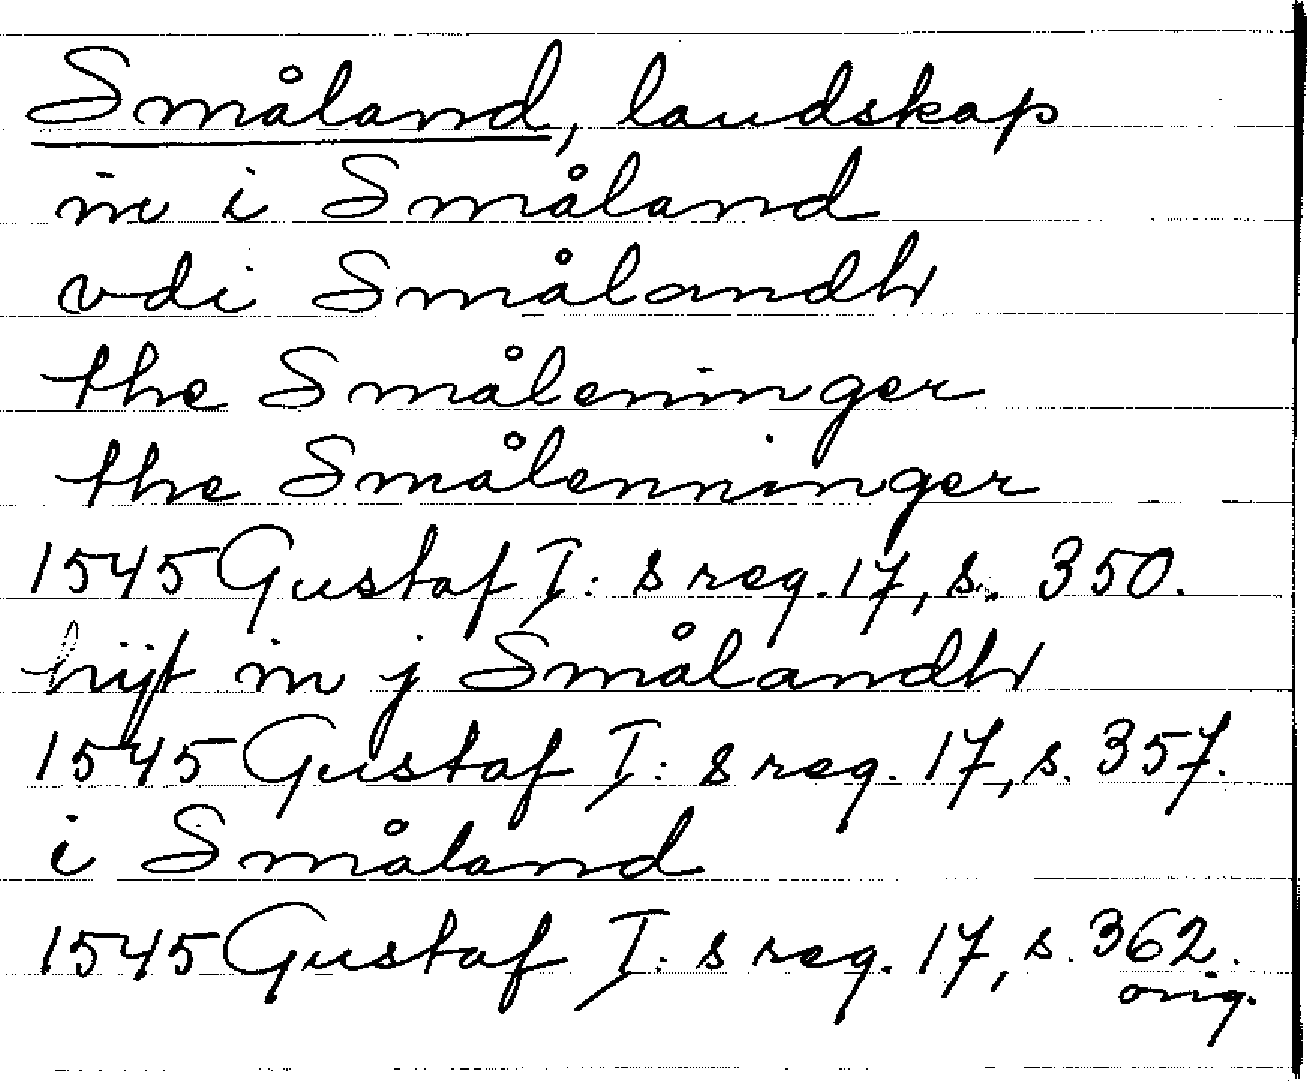 Småland, landskap
in i Småland
vdi Smålandh
the Småleninger
the Smålenninger
1545 Gustaf I: s reg. 17, s. 350.
hijt in j Smålandh
1545 Gustaf I: s reg. 17, s. 357.
i Småland
1545 Gustaf I: s reg. 17, s. 362.
orig.